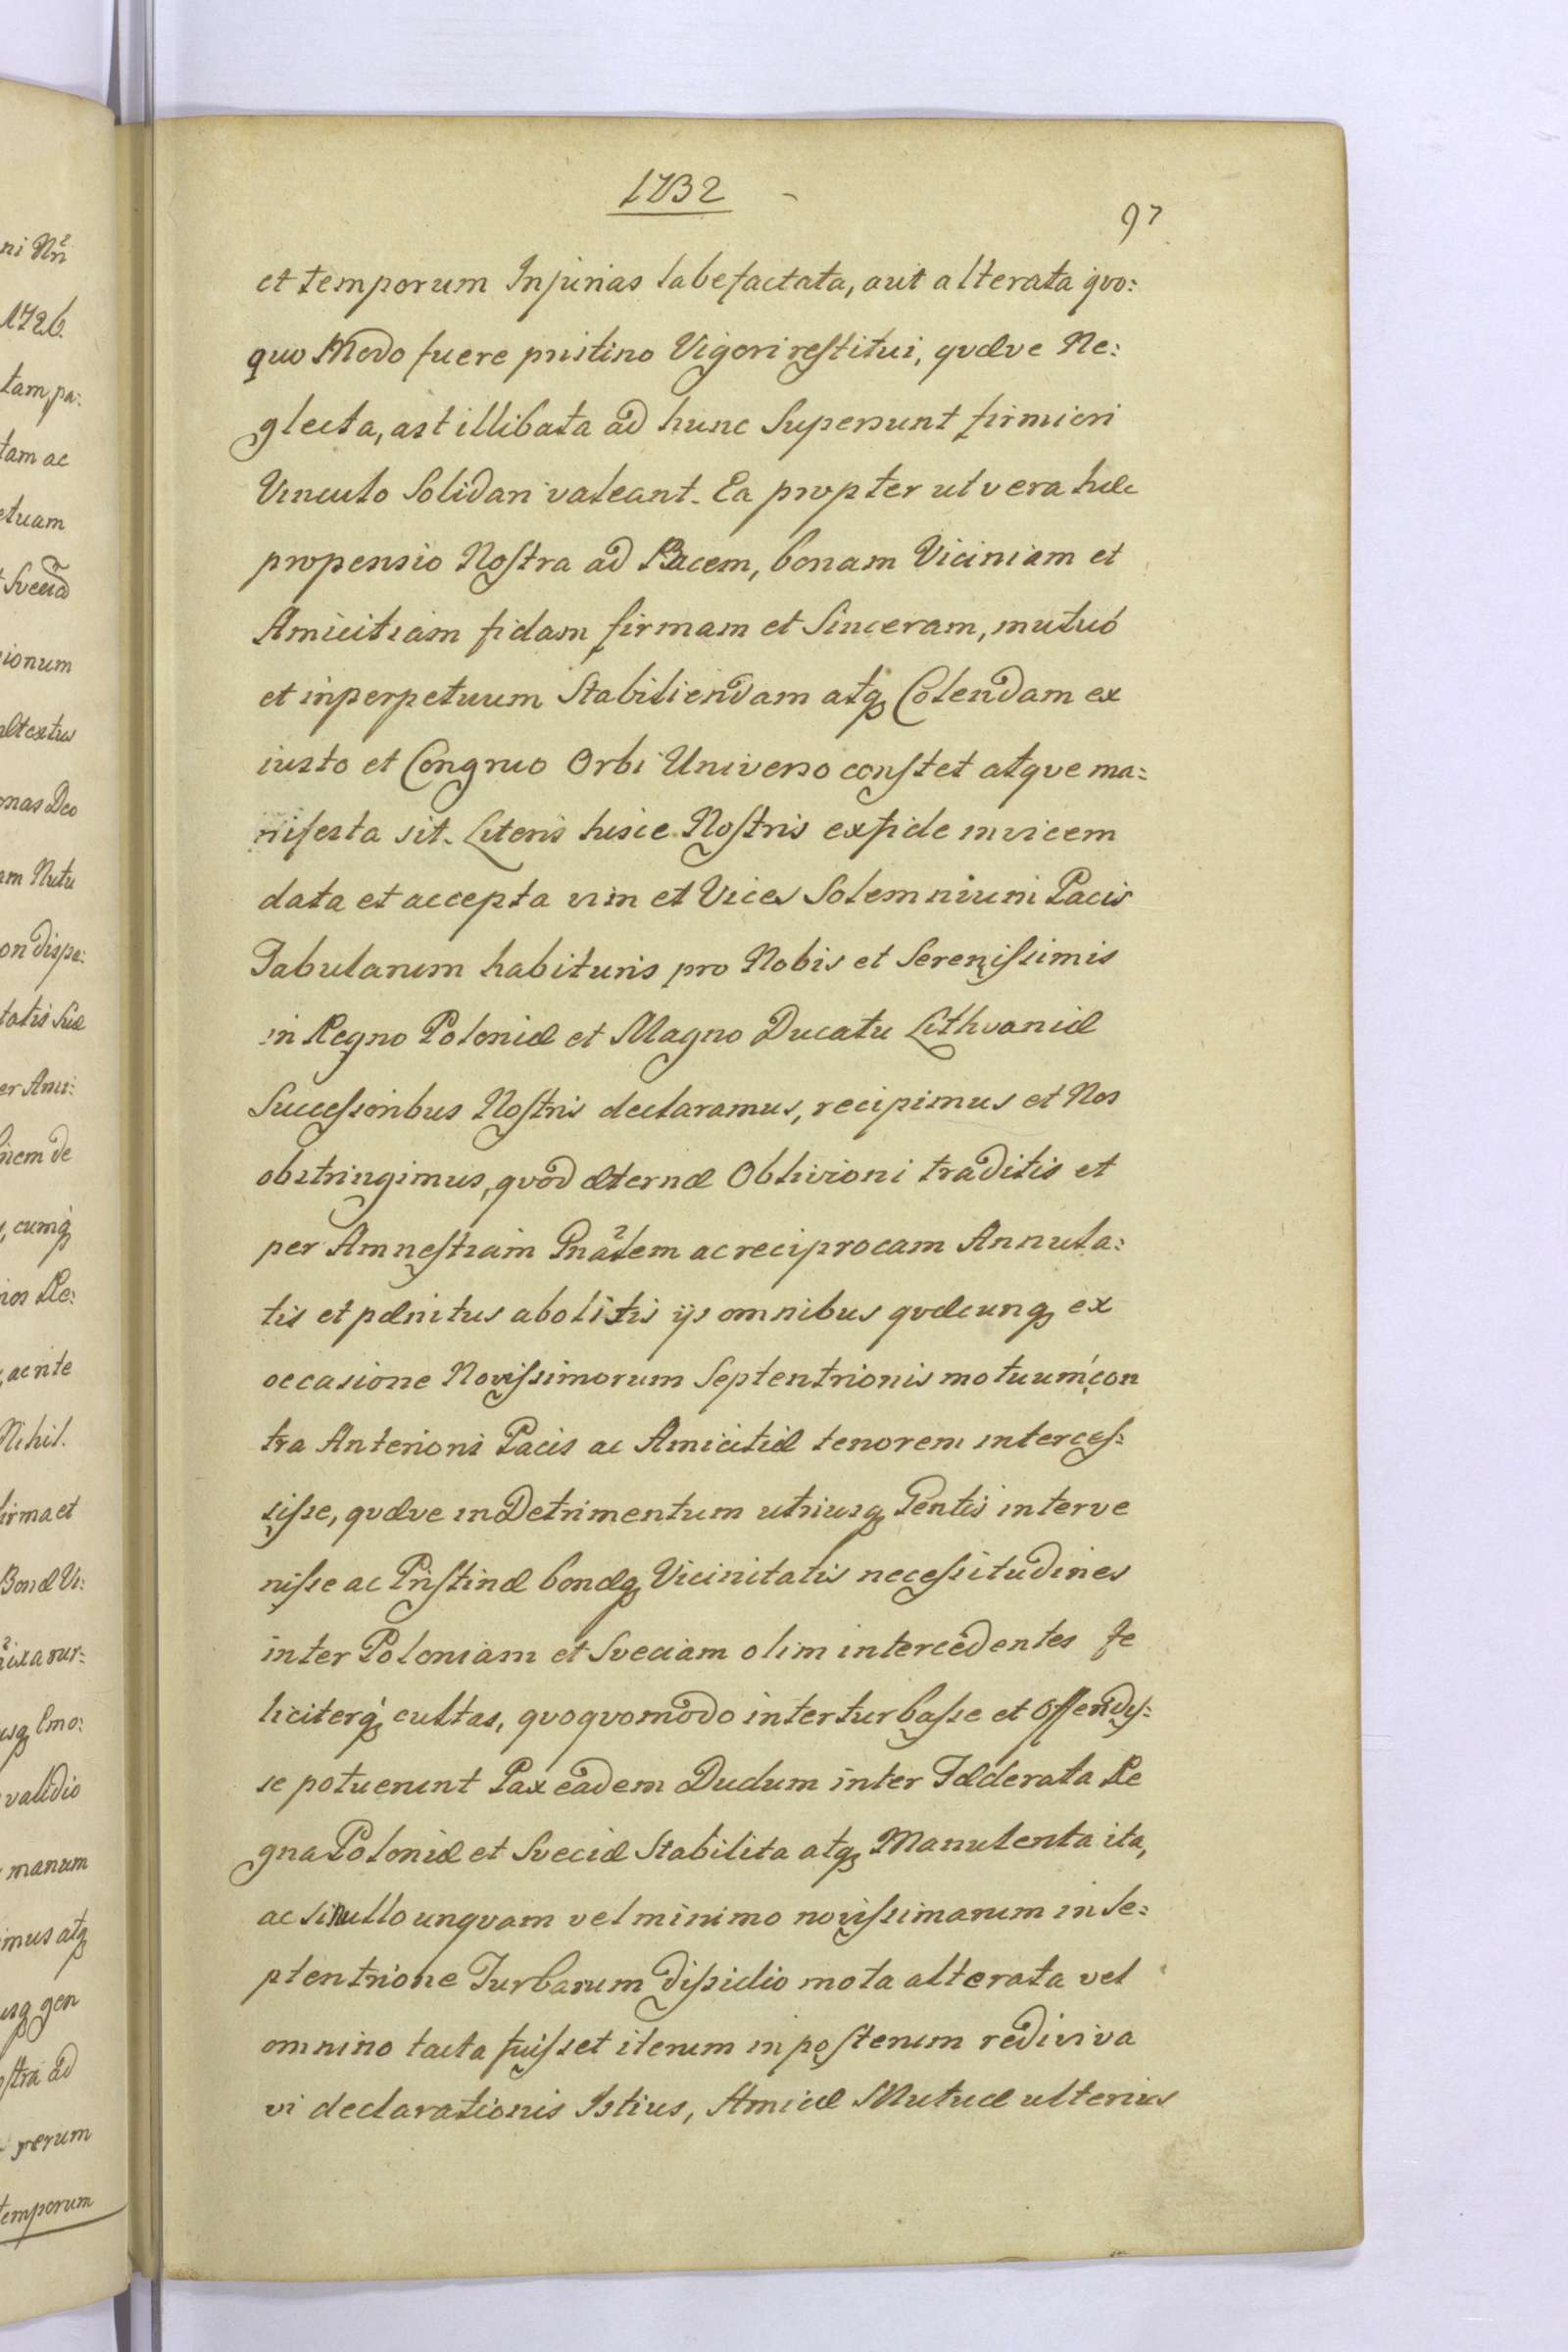 1732
97
et temporum Injurias labefactata, aut alterata qvo:
quo Modo fuere pristino Vigori restitui, qvæve Ne:
glecta, ast illibata ad hunc Supersunt firmiori
Vinculo Solidari valeant. Ea propter ut vera hæc
propensio Nostra ad Pacem, bonam Viciniam et
Amicitiam fidam firmam et Sinceram, mutuó
et inperpetuum Stabiliendam atq Colendam ex
iusto et Congruo Orbi Universo constet atqve ma:
nifesta sit. Literis hisce Nostris ex fide invicem
data et accepta vim et Vices Solemnium Pacis
Tabularum habituris pro Nobis et Serenissimis
in Regno Poloniæ et Magno Ducatu Lithvaniæ
Successoribus Nostris declaramus, recipimus et Nos
obstringimus, qvod æternæ Oblivioni traditis et
per Amnestiam Gnalem ac reciprocam Annula:
tis et pænitus abolitis ijs omnibus qvæcunq ex
occasione Novissimorum Septentrionis motuum con
tra Anterioris Pacis ac Amicitiæ tenorem interces:
sisse, qvæve in Detrimentum utriusq Gentis interve
nisse ac Pristinæ bonæq Vicinitatis necessitudines
inter Poloniam et Sveciam olim intercedentes fe
liciterq cultas, qvoqvomodo interturbasse et Offendis:
se potuerunt Pax eadem Dudum inter Fæderata Re
gna Poloniæ et Sveciæ Stabilita atq Manutenta ita,
ac si Nullo unqvam vel minimo novissimarum in Se:
ptentrione Turbarum dissidio mota alterata vel
omnino tacta fuisset iterum in posterum rediviva
vi declarationis Istius, Amicæ Mutuæ ulterius
ni Nri
1726.
tam, pa:
tam ac
etuam
ionum
onas Deo
am Nutu
on dispa:
tatis Suæ
er Ami:
nem de
, cumq
nos Re:
, ac rite
Nihil.
firma et
Bonæ Vi:
validio
manum
imus atq
usq gen
stra ad
rerum
temporum